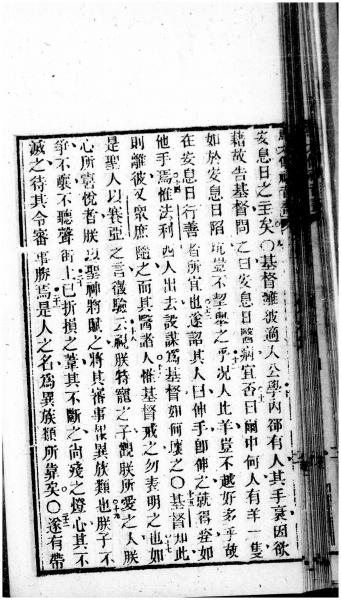 安息日之主矣〇基督離彼適入公學內卻有人其手衰因欲
藉故告基督問之曰安息日醫病宜否曰爾中何人有羊一隻
如於安息日陷坑豈不挈舉之乎况人比羊豈不越好多乎故
在安息日行善者所宜也遂詔其人曰伸手卽伸之就得痊如
他手焉惟法利西人出去設謀爲基督如何壞之〇基督知此
則離彼又衆庶隨之而其醫諸人惟基督戒之勿表明之也如
是聖人以賽亞之言徵驗云視朕特寵之子觀朕所愛之人朕
心所喜悅者朕以聖神將賦之將其審事報異族類也朕子不
爭不嚷不聽聲街上已折損之葦其不斷之尙殘之燈心其不
滅之待其令審事勝焉是人之名爲異族類所靠矣〇遂有帶